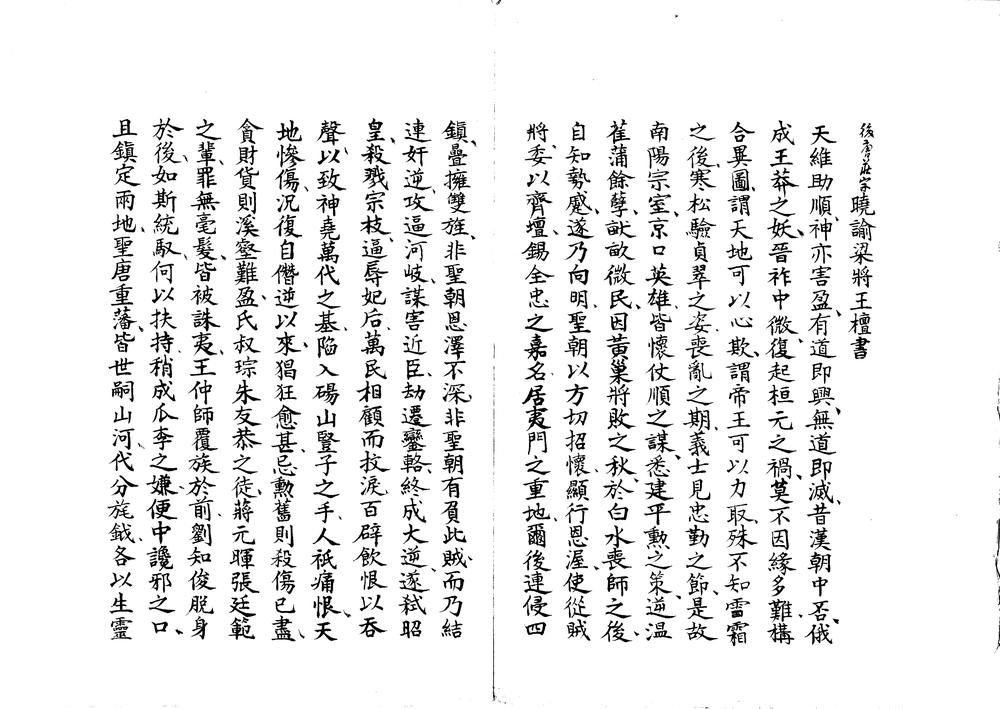 後唐莊宗曉諭梁將王檀書
天維助順、神亦害盈、有道即興、無道即滅、昔漢朝中否、俄
成王莽之妖、晉祚中微、復起桓元之禍、莫不因緣多難、構
合異圖、謂天地可以心欺、謂帝王可以力取、殊不知雪霜
之後、寒松驗貞翠之姿、喪亂之期、義士見忠勤之節、是故
南陽宗室、京口英雄、皆懷仗順之謀、悉建平勲之策、逆溫
萑蒲餘孽、畎畝微民、因黃巢將敗之秋、於白水喪師之後、
自知勢蹙、遂乃向明、聖朝以方切招懷、顯行恩渥、使從賊
將、委以齊壇、錫全忠之嘉名、居夷門之重地、爾後連侵四
鎮、疊擁雙旌、非聖朝恩澤不深、非聖朝有負此賊、而乃結
連奸逆、攻逼河岐、謀害近臣、劫遷鑾輅、終成大逆、遂弑昭
皇、殺戮宗枝、逼辱妃后、萬民相顧而抆淚、百辟飲恨以吞
聲、以致神堯萬代之基、陷入碭山豎子之手、人祇痛恨、天
地慘傷、況復自僭逆以來、猖狂愈甚、忌勲舊則殺傷已盡、
貪財貨則溪壑難盈、氏叔琮朱友恭之徒、蔣元暉張廷範
之輩、罪無毫髮、皆被誅夷、王仲師覆族於前、劉知俊脫身
於後、如斯統馭、何以扶持、稍成瓜李之嫌、便中讒邪之口、
且鎮定兩地、聖唐重藩、皆世嗣山河、代分旄鉞、各以生靈